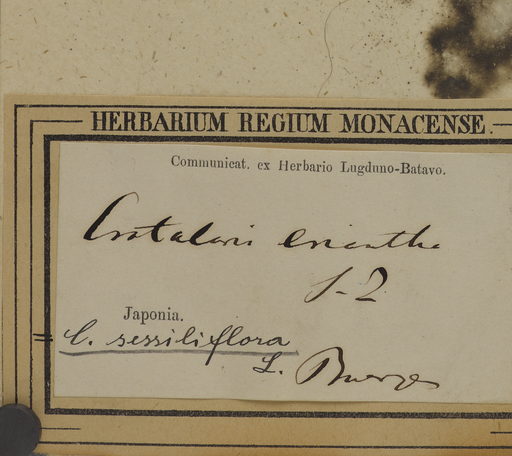 HERBARIUM REGIUM MONACENSE.
Communicat. ex Herbario Lugduno-Batavo.
Crotalari eriantha
S-Z
Japonia.
= C. sessiliflora
L.
Buerger